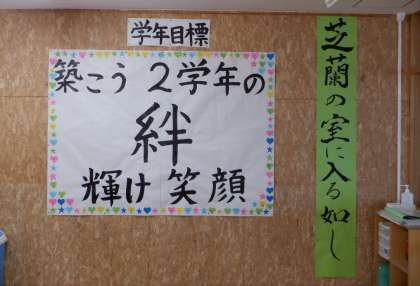 学年目標
築こう 2学年の
絆
輝け 笑顔
芝蘭の室に入る如し